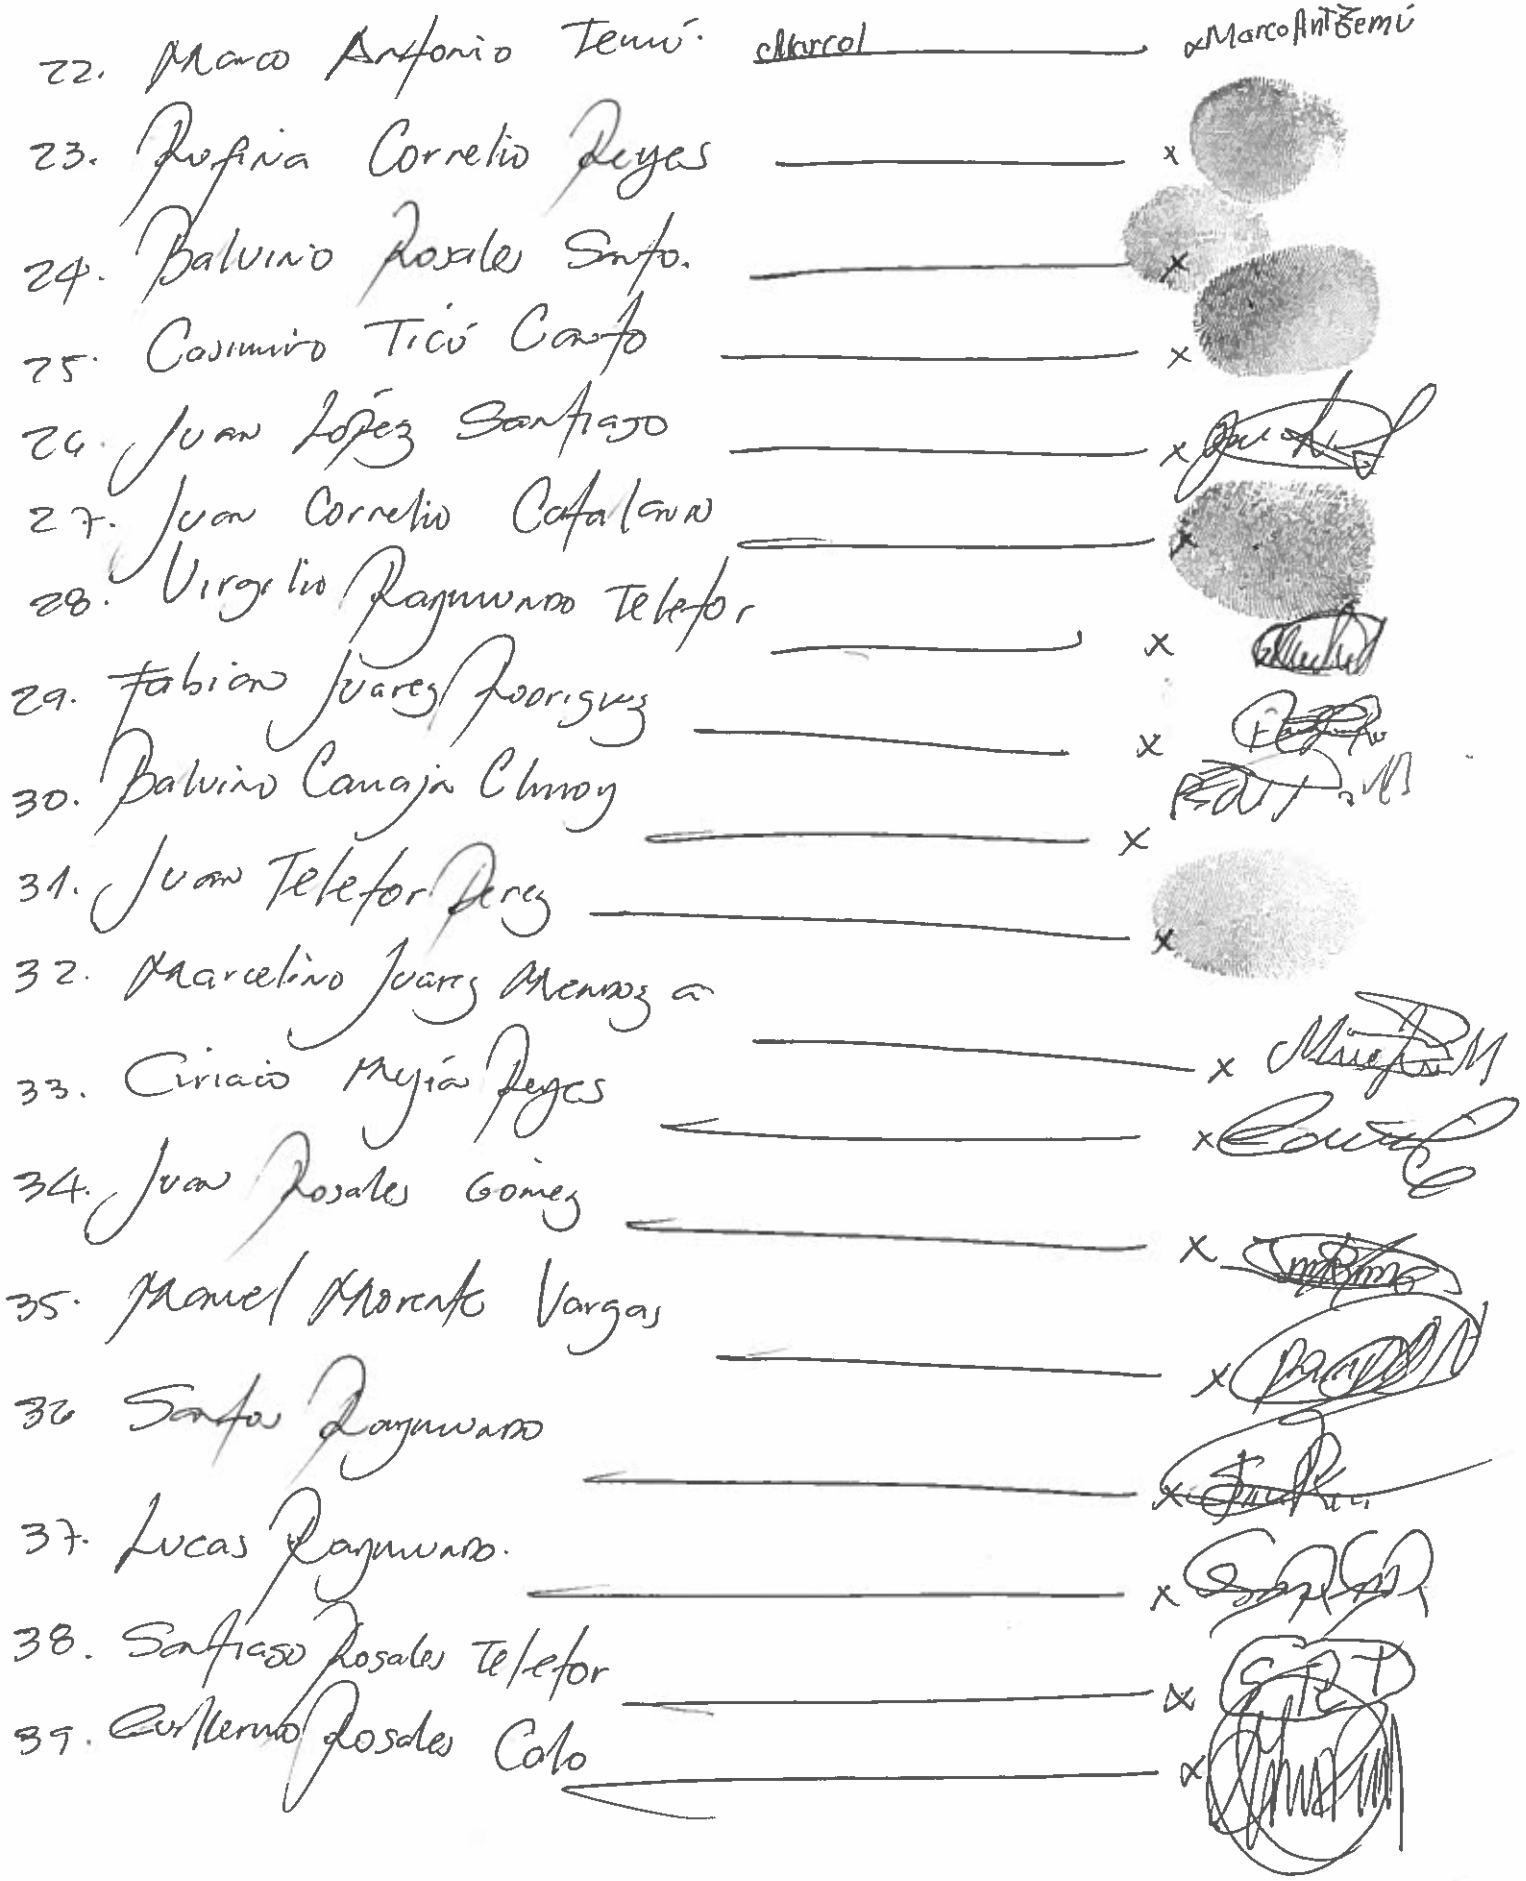 22. Marco Antonio Temú. Marcol x Marco Ant Temú
23. Rufina Cornelio Reyes x
24. Balvino Rosales Santo. x
25. Casimiro Ticú Canto x
26. Juan López Santiago x
27. Juan Cornelio Catalan x
28. Virgilio Raymundo Teletor x
29. Fabian Juarez Rodriguez x
30. Balvino Camaja x
31. Juan Teletor Perez x
32. Marcelino Juarez Mendoza x
33. Ciriaco Mejía Reyes x
34. Juan Rosales Gómez x
35. Manuel Morente Vargas x
36 Santos Raymundo x
37. Lucas Raymundo. x
38. Santiago Rosales Teletor x SRT
39. Guillermo Rosales Calo x